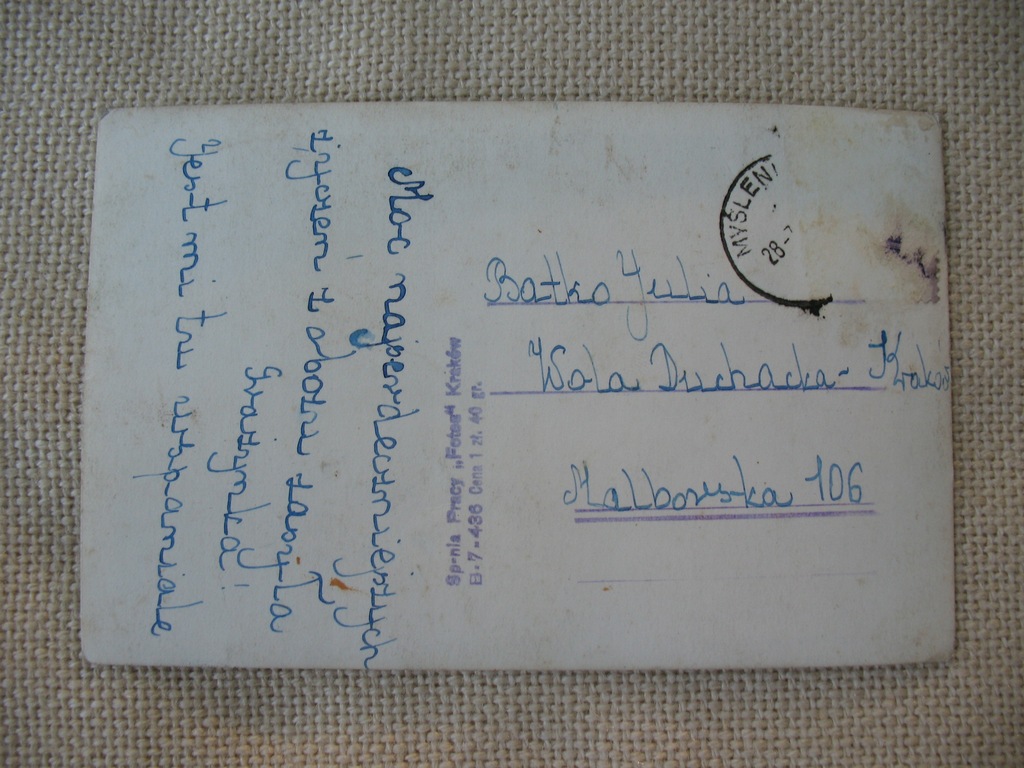 Moc najserdeczniejszych
życzeń z obozu zasyła
Grażynka
Jest mi tu wspaniale
Sp-nia Pracy „Foton" Kraków
B-7-436 Cena 1 zł. 40 gr.
MYŚLENI
28.
Batko Julia
Wola Duchacka - Kraków
Malborska 106